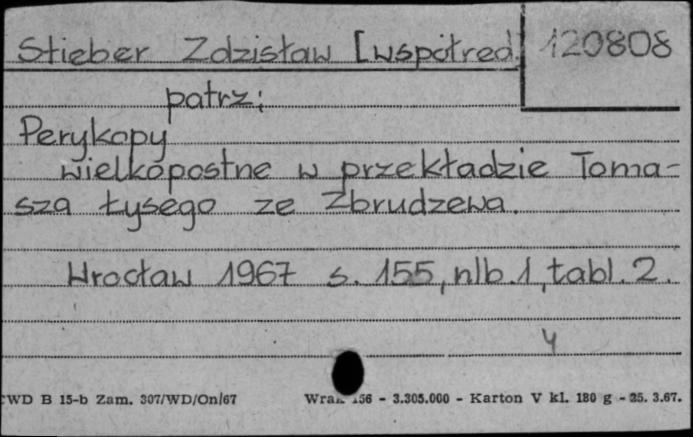 Stieber Zdzisław [współred. 120808
patrz:
Perykopy
wielkopostne w przekładzie Toma-
sza Łysego ze Zbrudzewa.
Wrocław 1967 s. 155, nlb. 1, tabl. 2.
4
WD B 15-b Zam. 307/WD/On/67 56 - 3.305.000 - Karton V kl. 180 g - 25. 3.67.